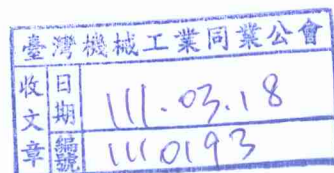 臺灣機械工業同業公會
收文章
日期 111.03.18
編號 1110193